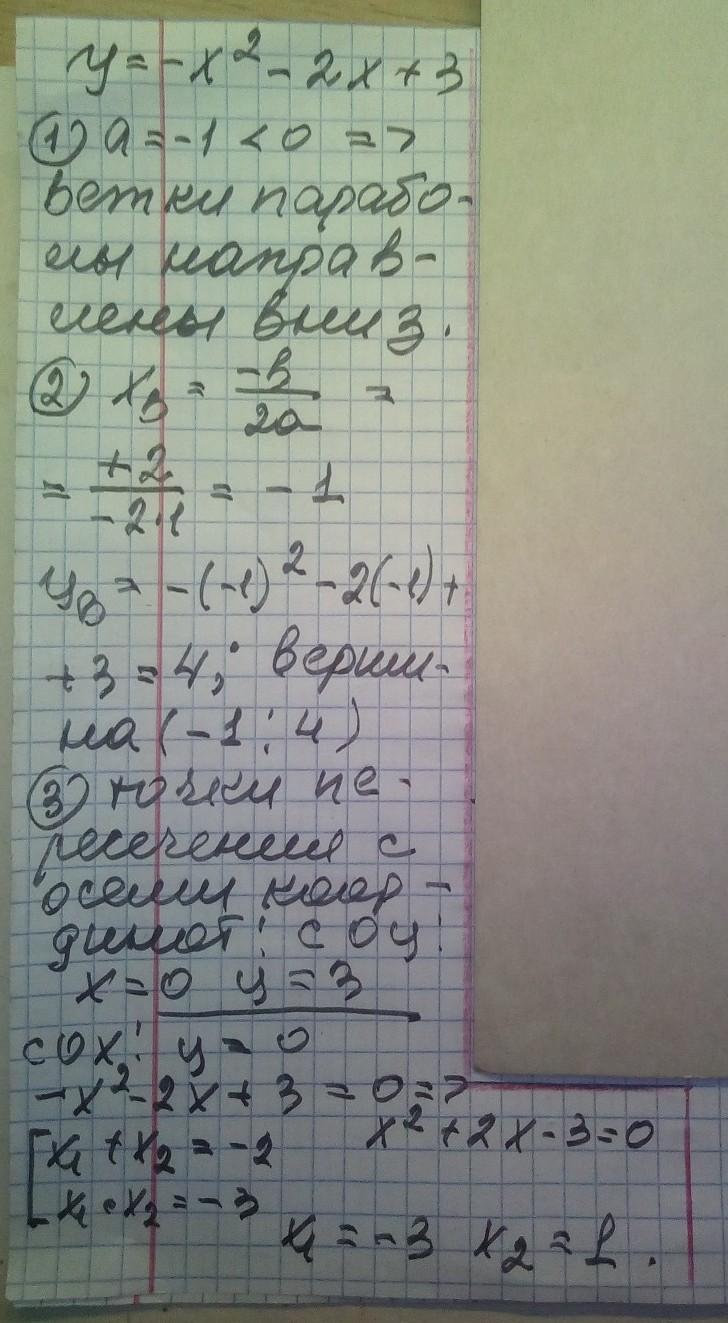 y = -x² - 2x + 3
① a = -1 < 0 =>
ветки парабо-
лы направ-
лены вниз.
② xв = -b/2a =
= +2/-2·1 = -1
yв = -(-1)² - 2(-1) +
+3 = 4; верши-
на (-1; 4)
③ точки пе-
ресечения с
осями коор-
динат: с оy:
x = 0 y = 3
с ох: y = 0
-x² - 2x + 3 = 0 =>
x² + 2x - 3 = 0
[ x₁ + x₂ = -2
x₁ · x₂ = -3
x₁ = -3 x₂ = 1.